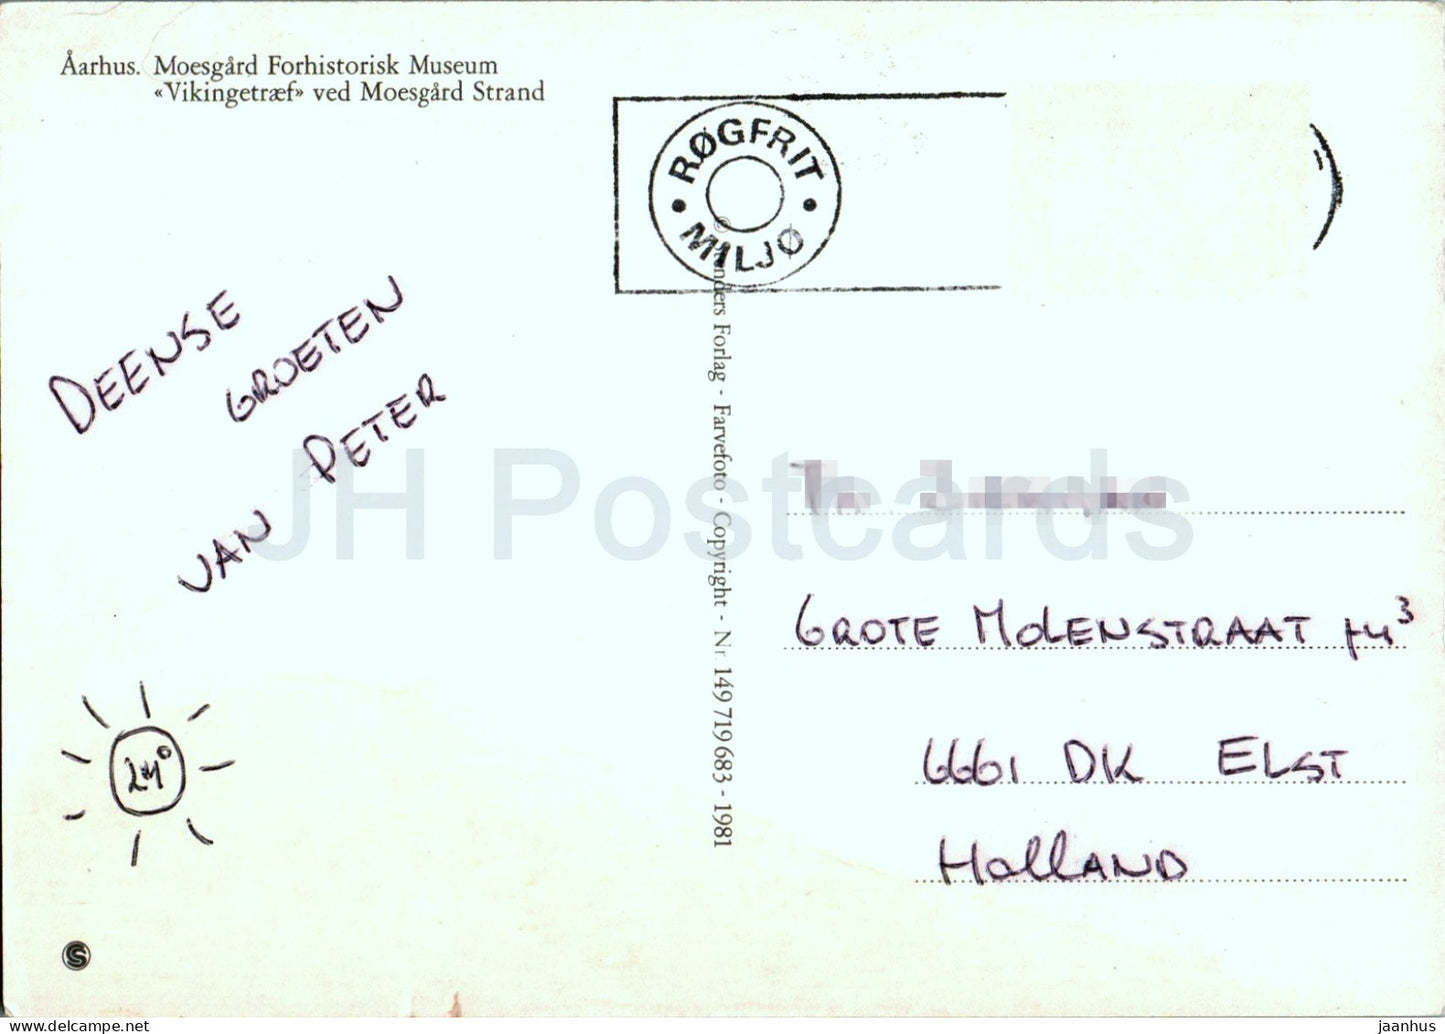 Åarhus. Moesgård Forhistorisk Museum
«Vikingetræf» ved Moesgård Strand
RØGFRIT
MILJØ
DEENSE
GROETEN
VAN PETER
24°
nders Forlag - Farvefoto - Copyright - Nr 149 719 683 - 1981
GROTE MOLENSTRAAT
6661 DK ELST
HOLLAND
S
JH Postcards
delcampe.net
jaanhus